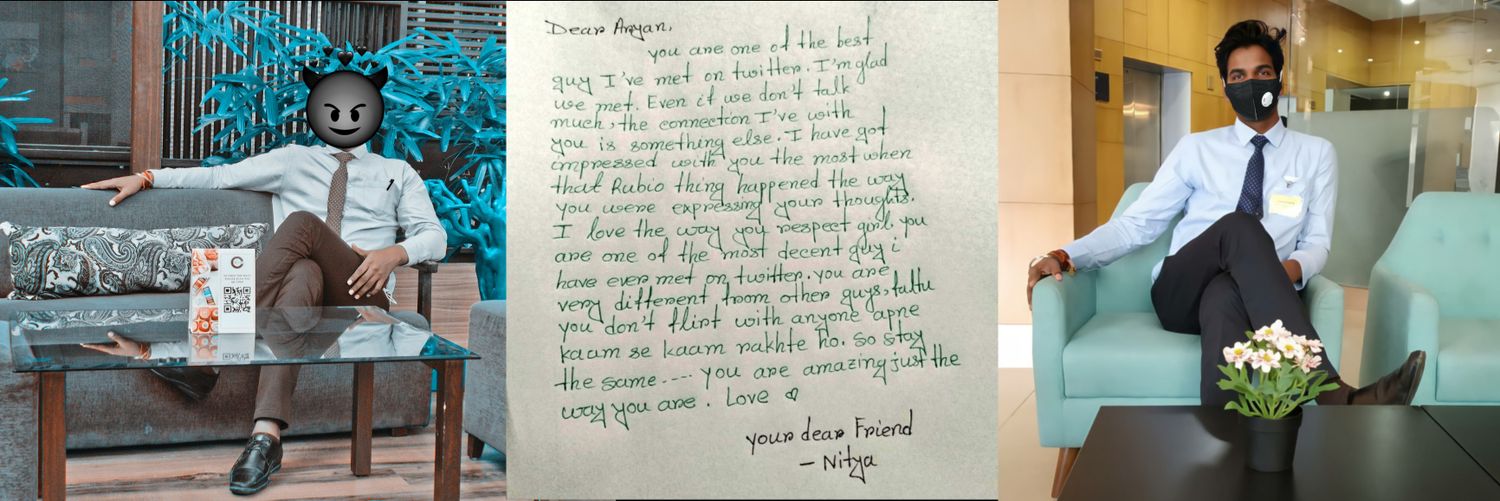 Dear Aryan,
you are one of the best
guy I've met on twitter. I'm glad
we met. Even if we don't talk
much, the connection I've with
you is something else. I have got
impressed with you the most when
that Rubio thing happened the way
you were expressing your thoughts.
I love the way you respect girl. you
are one of the most decent guy i
have ever met on twitter. you are
very different from other guys, faltu
you don't flirt with anyone apne
kaam se kaam rakhte ho. so stay
the same.... you are amazing just the
way you are. Love
your dear Friend
- Nitya